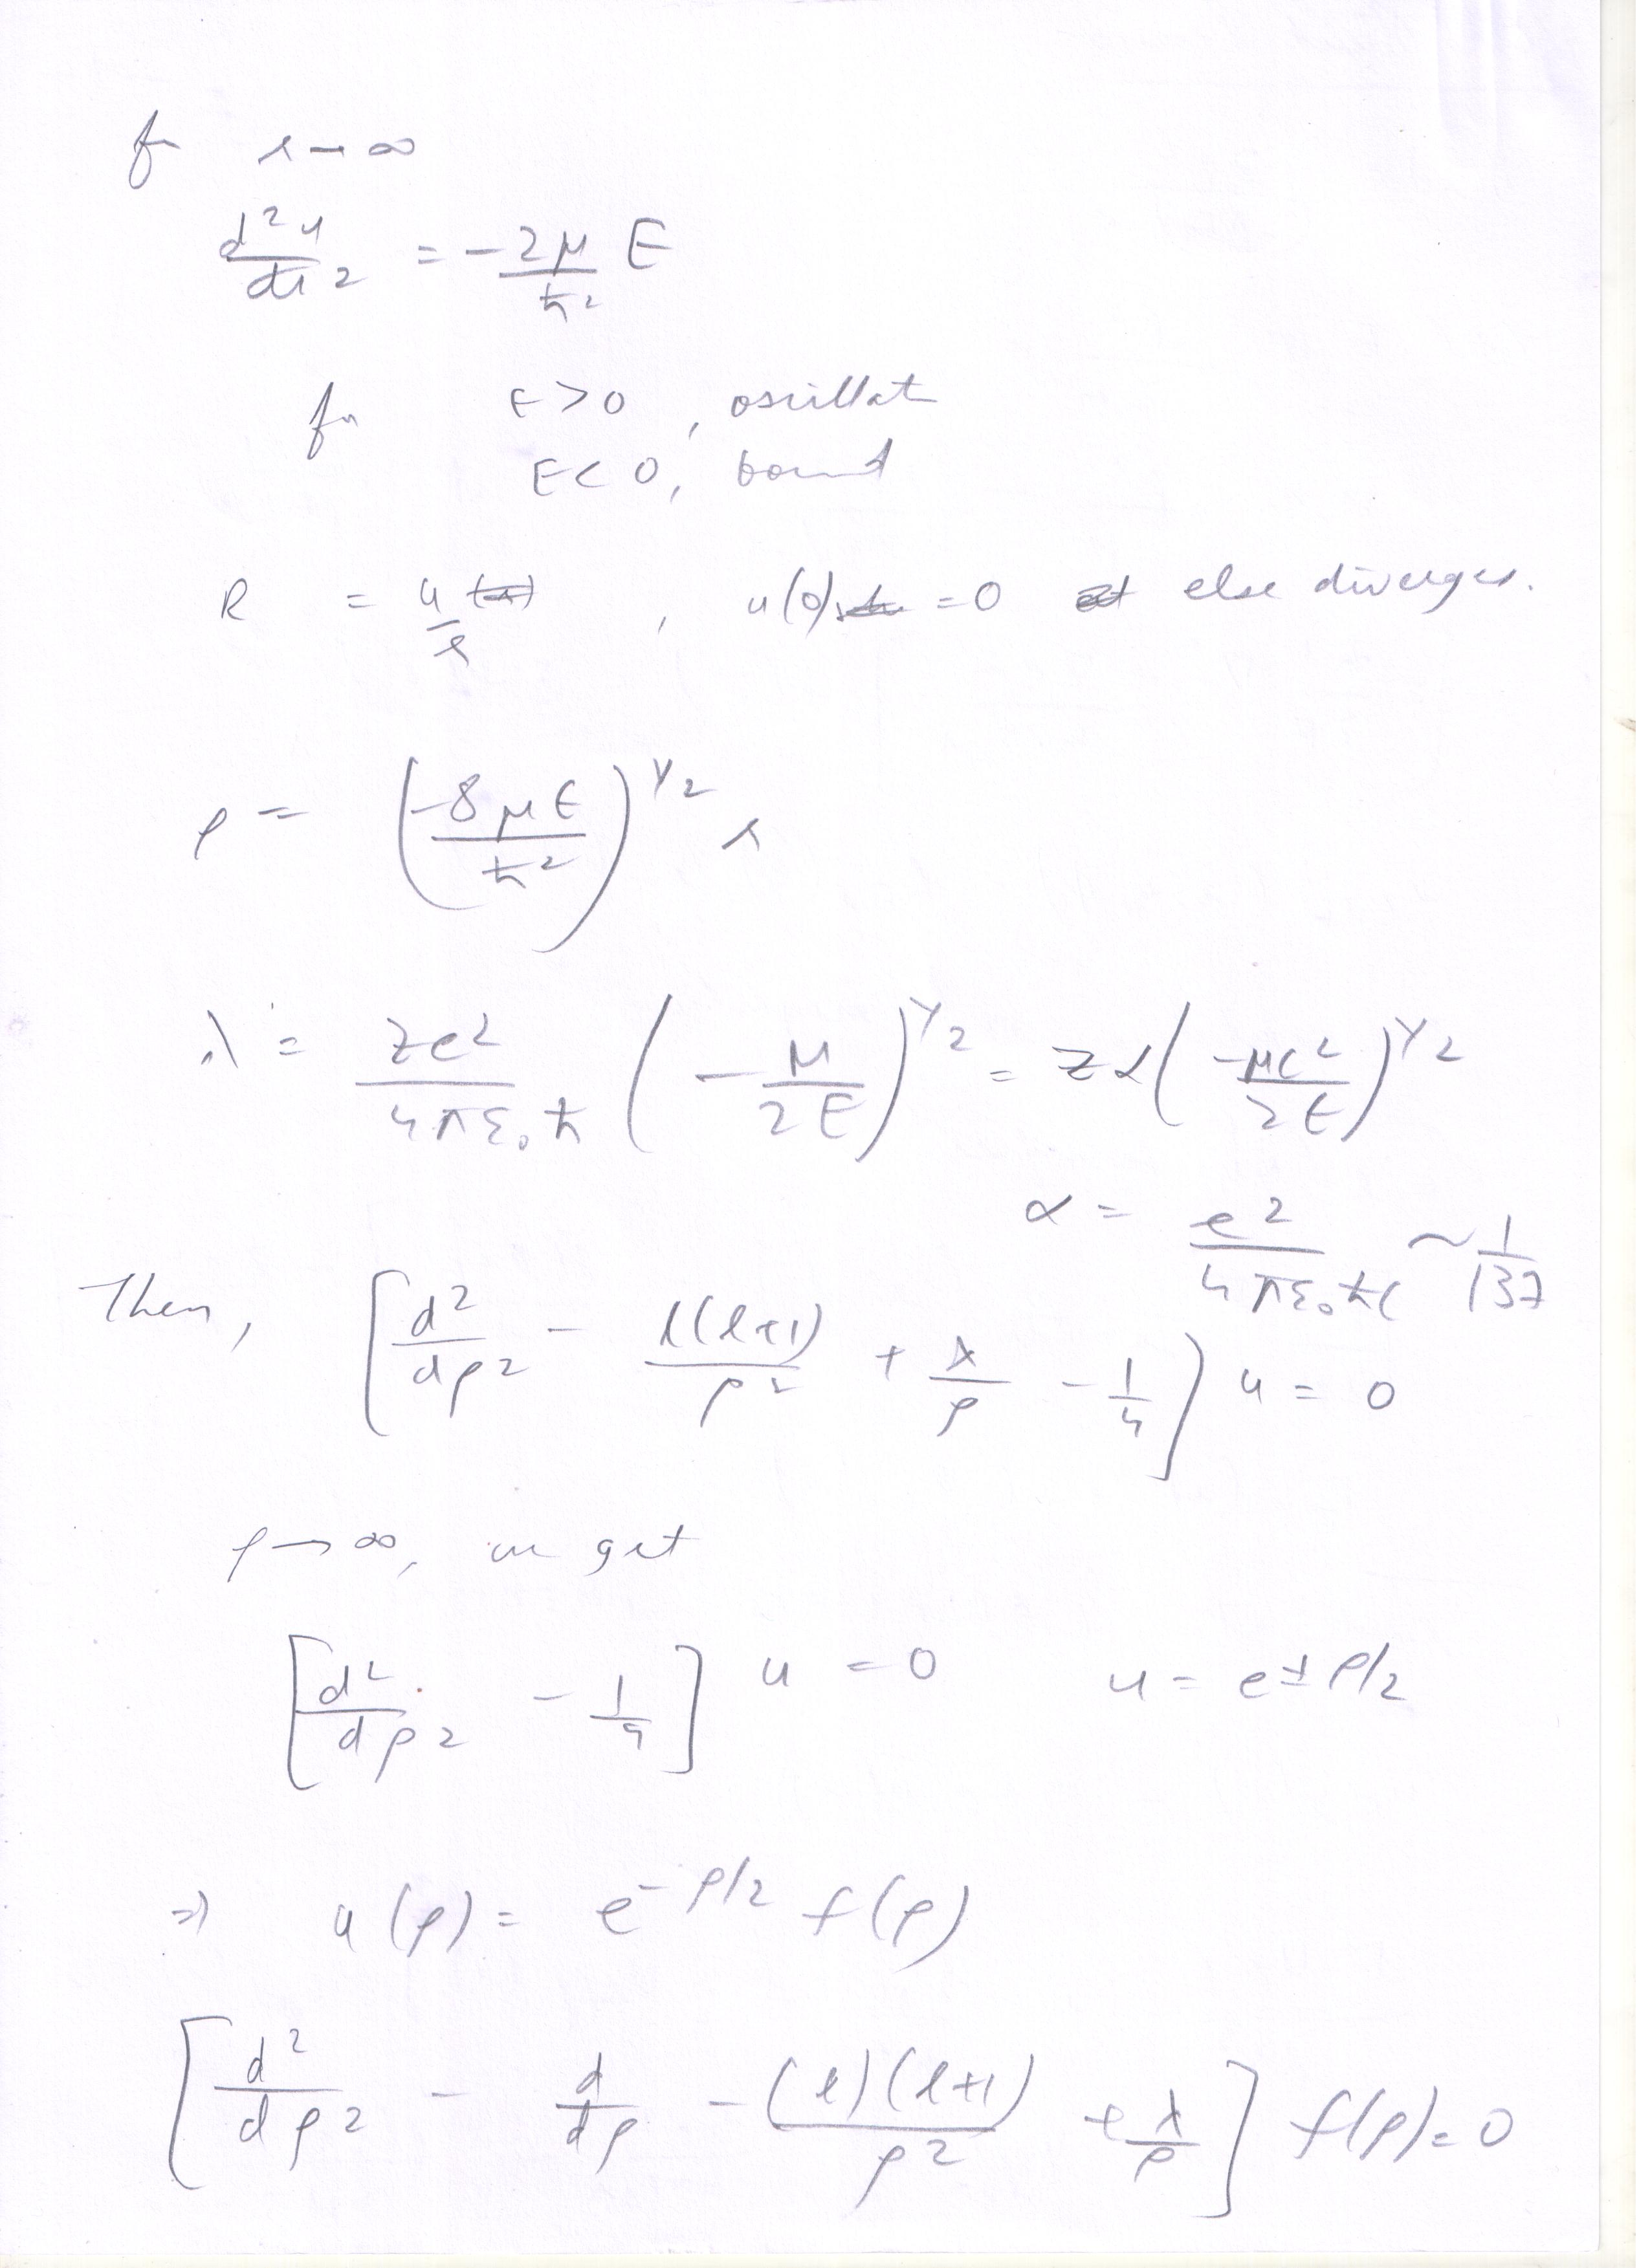 for r → ∞
d²u/dr² = -2μ/ħ² E
for E>0, oscillat
E<0, bound
R = u/r, u(0) = 0 else diverges.
ρ = (-8μE/ħ²)^1/2 r
λ = Ze²/4πε₀ħ (-μ/2E)^1/2 = Zα(-μc²/2E)^1/2
α = e²/4πε₀ħc ~ 1/137
Then, [d²/dρ² - l(l+1)/ρ² + λ/ρ - 1/4] u = 0
ρ → ∞, we get
[d²/dρ² - 1/4] u = 0 u = e^±ρ/2
⇒ u(ρ) = e^-ρ/2 f(ρ)
[d²/dρ² - d/dρ - (l)(l+1)/ρ² + λ/ρ] f(ρ) = 0